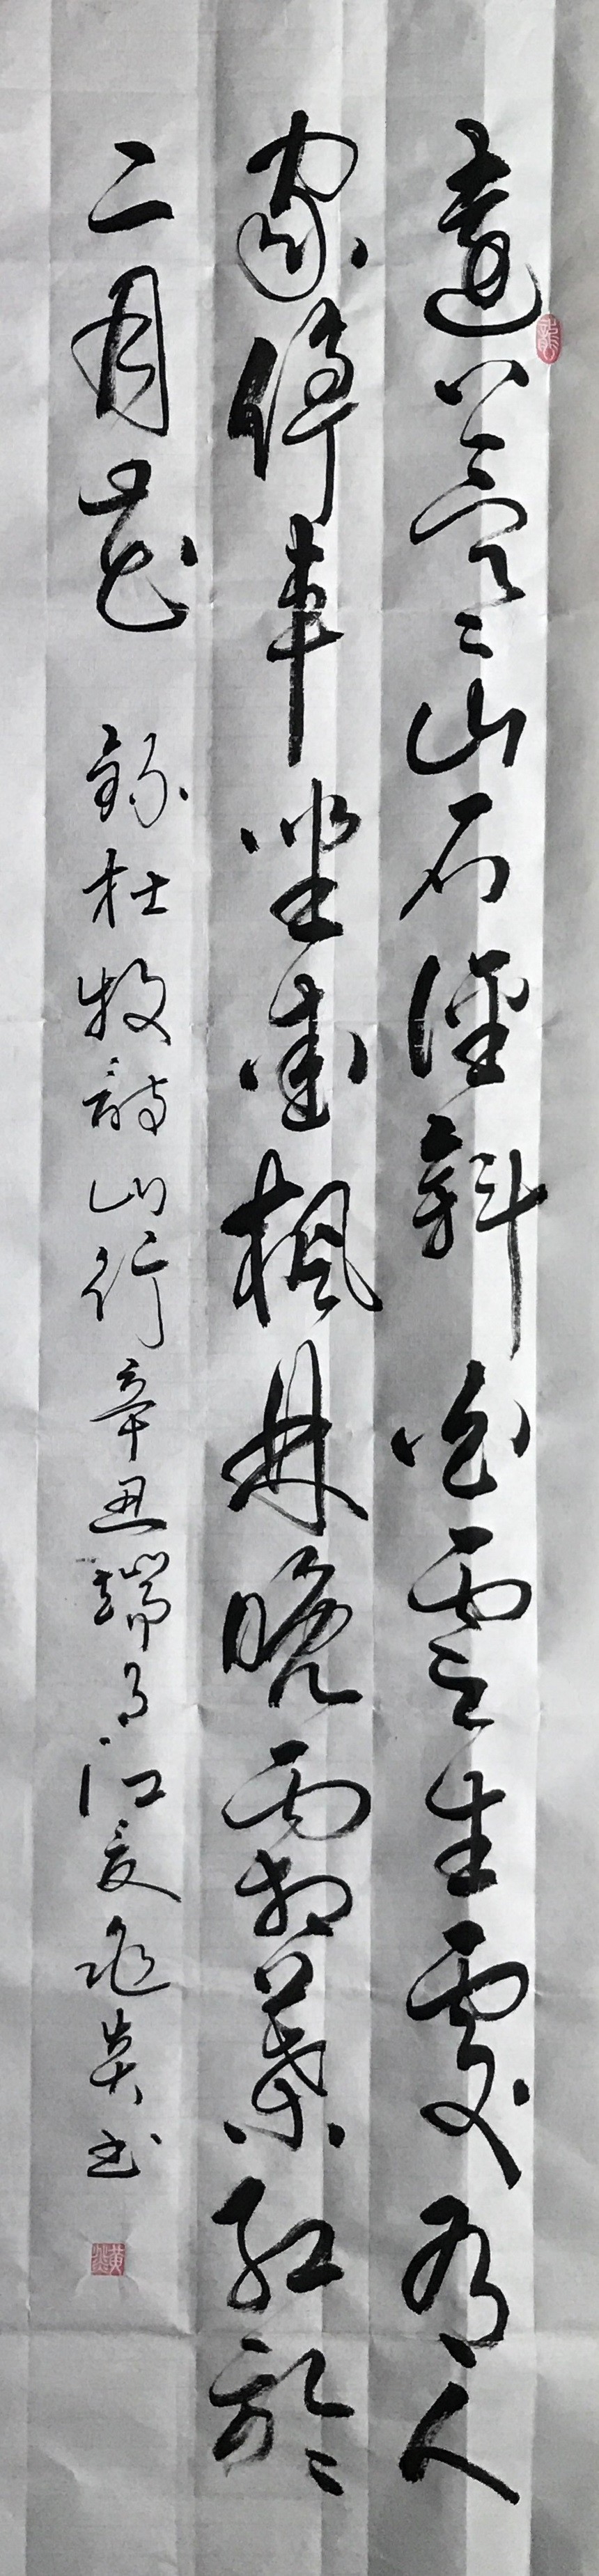 遠上寒山石徑斜白雲生處有人
家停車坐愛楓林晚霜葉紅於
二月花 錄杜牧詩山行辛丑端月江夏书